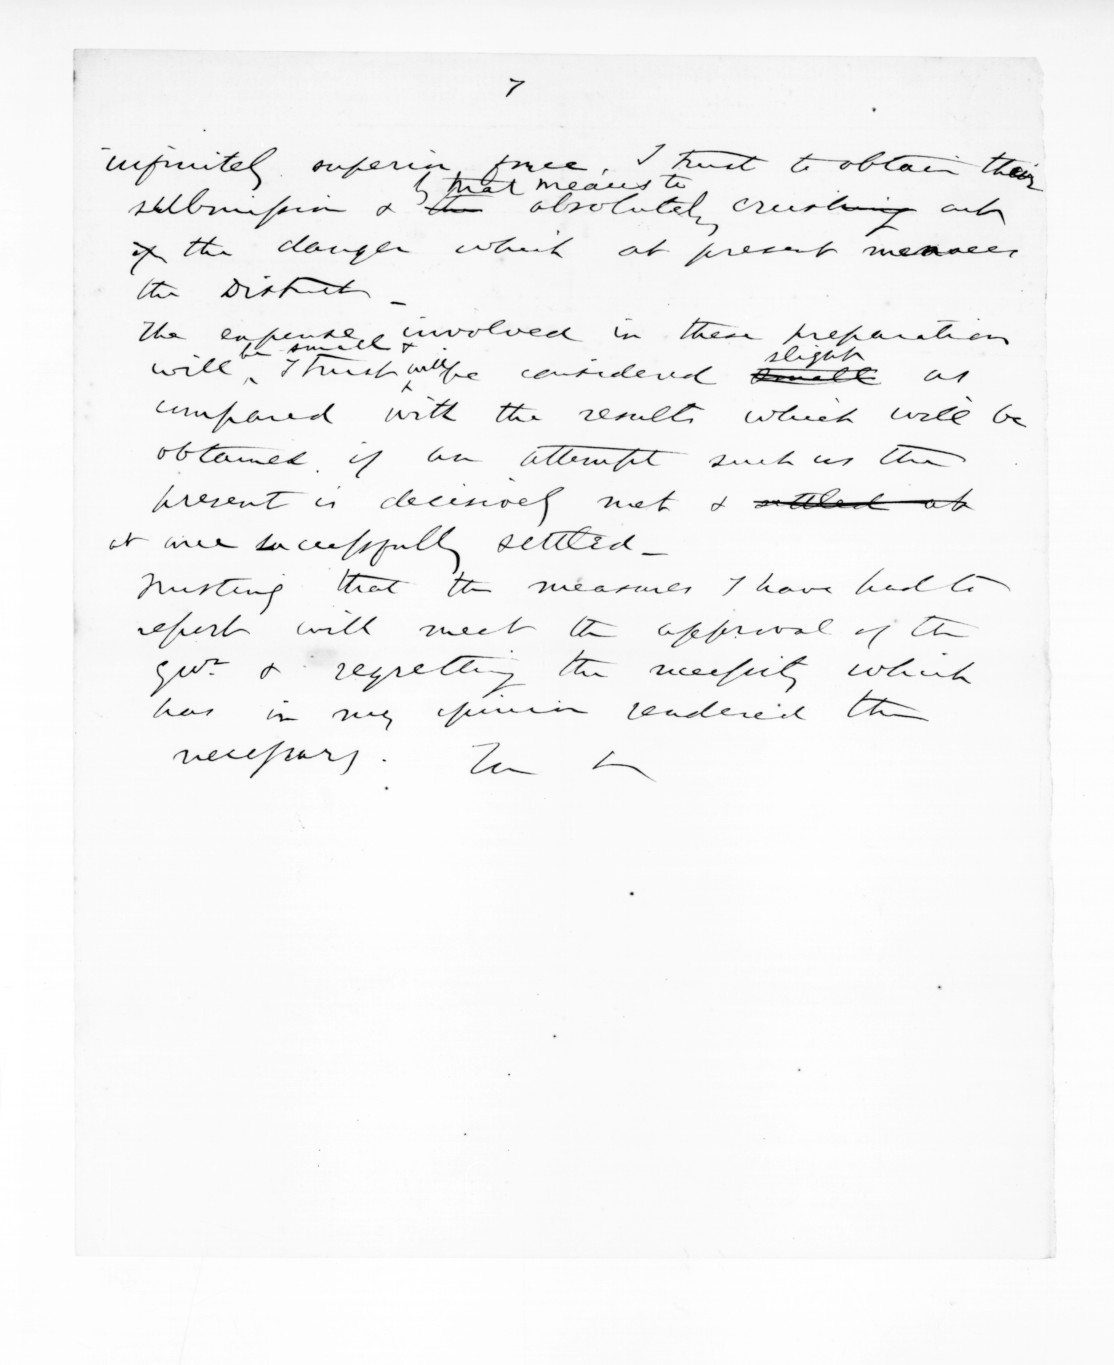 7
infinitely superior force, I trust to obtain their
by that means to
submission & the absolutely crushing out
of the danger which at present menaces
the District _
The expense involved in these preparation
be small & slight
will, I trust will be considered small as
compared with the results which will be
obtained if an attempt such as the
present is decisively met & settled at
at once successfully settled _
Trusting that the measures I have had to
report will meet the approval of the
Govr. & regretting the necessity which
has in my opinion rendered them
necessary.